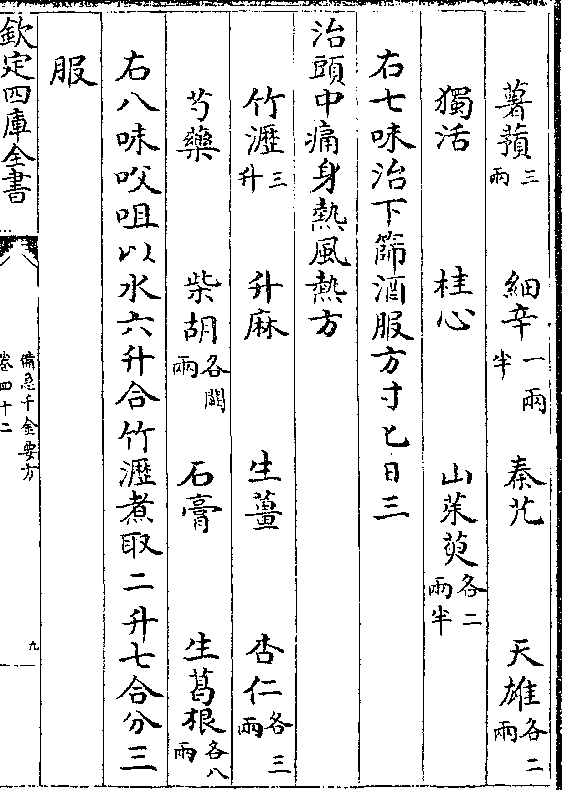 薯蕷三兩 細辛一兩半 秦艽 天雄各二兩
獨活 桂心 山茱萸各二兩半
右七味治下篩酒服方寸匕日三
治頭中痛身熱風熱方
竹瀝三升 升麻 生薑 杏仁各三兩
芍藥 柴胡各闕兩 石膏 生葛根各八兩
右八味㕮咀以水六升合竹瀝煮取二升七合分三
服
欽定四庫全書
備急千金要方
卷四十二
九